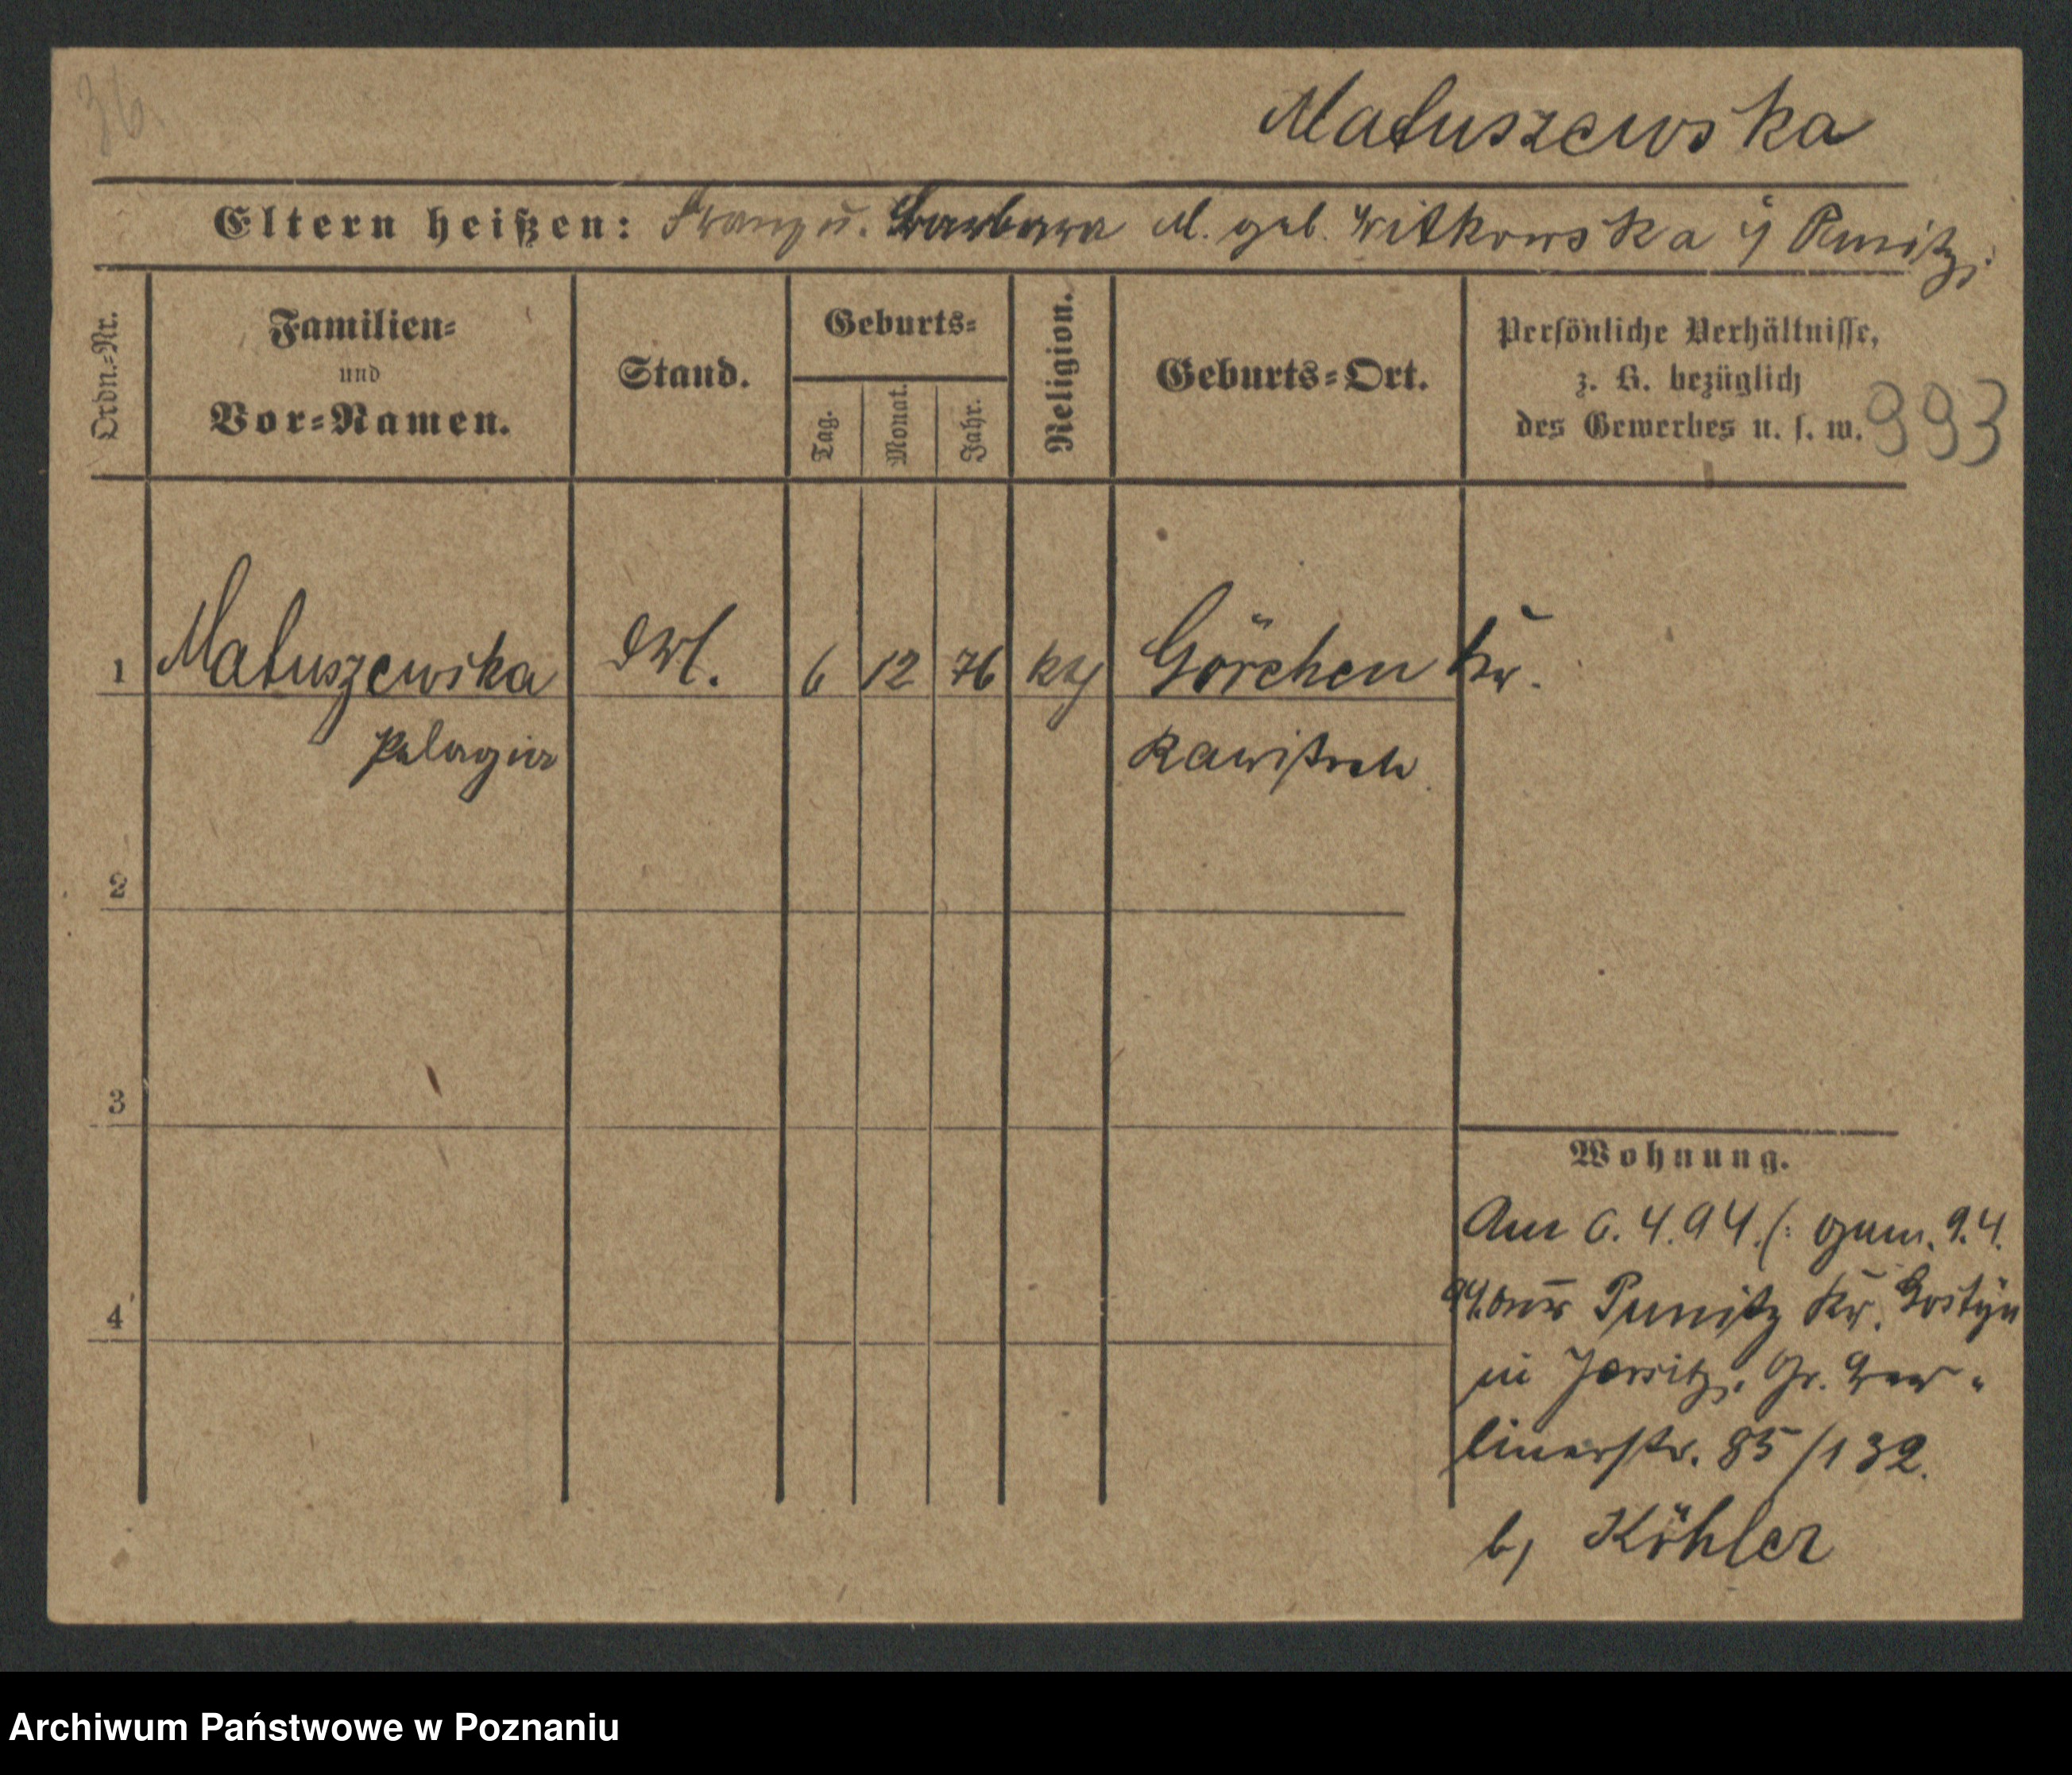 36.
Matuszewska
Eltern heißen: Franz u. Barbara M. geb. Witkowska Punitz.
Ordn.=Nr.
Familien=
und
Vor=Namen.
Stand.
Geburts=
Tag.
Monat.
Jahr.
Religion.
Geburts=Ort.
Persönliche Verhältnisse,
z. B. bezüglich
des Gewerbes u. s. w.
993
1 Matuszewska 6 12 76 kth Görchen Kr.
Pelagia Rawitsch
2
3
4
Wohnung.
Am 6.4.94. (: gem. 9.4.
94. aus Punitz Kr. Gostyn
in Jersitz, Gr. Ber=
linerstr. 85/132.
b, Köhler
Archiwum Państwowe w Poznaniu